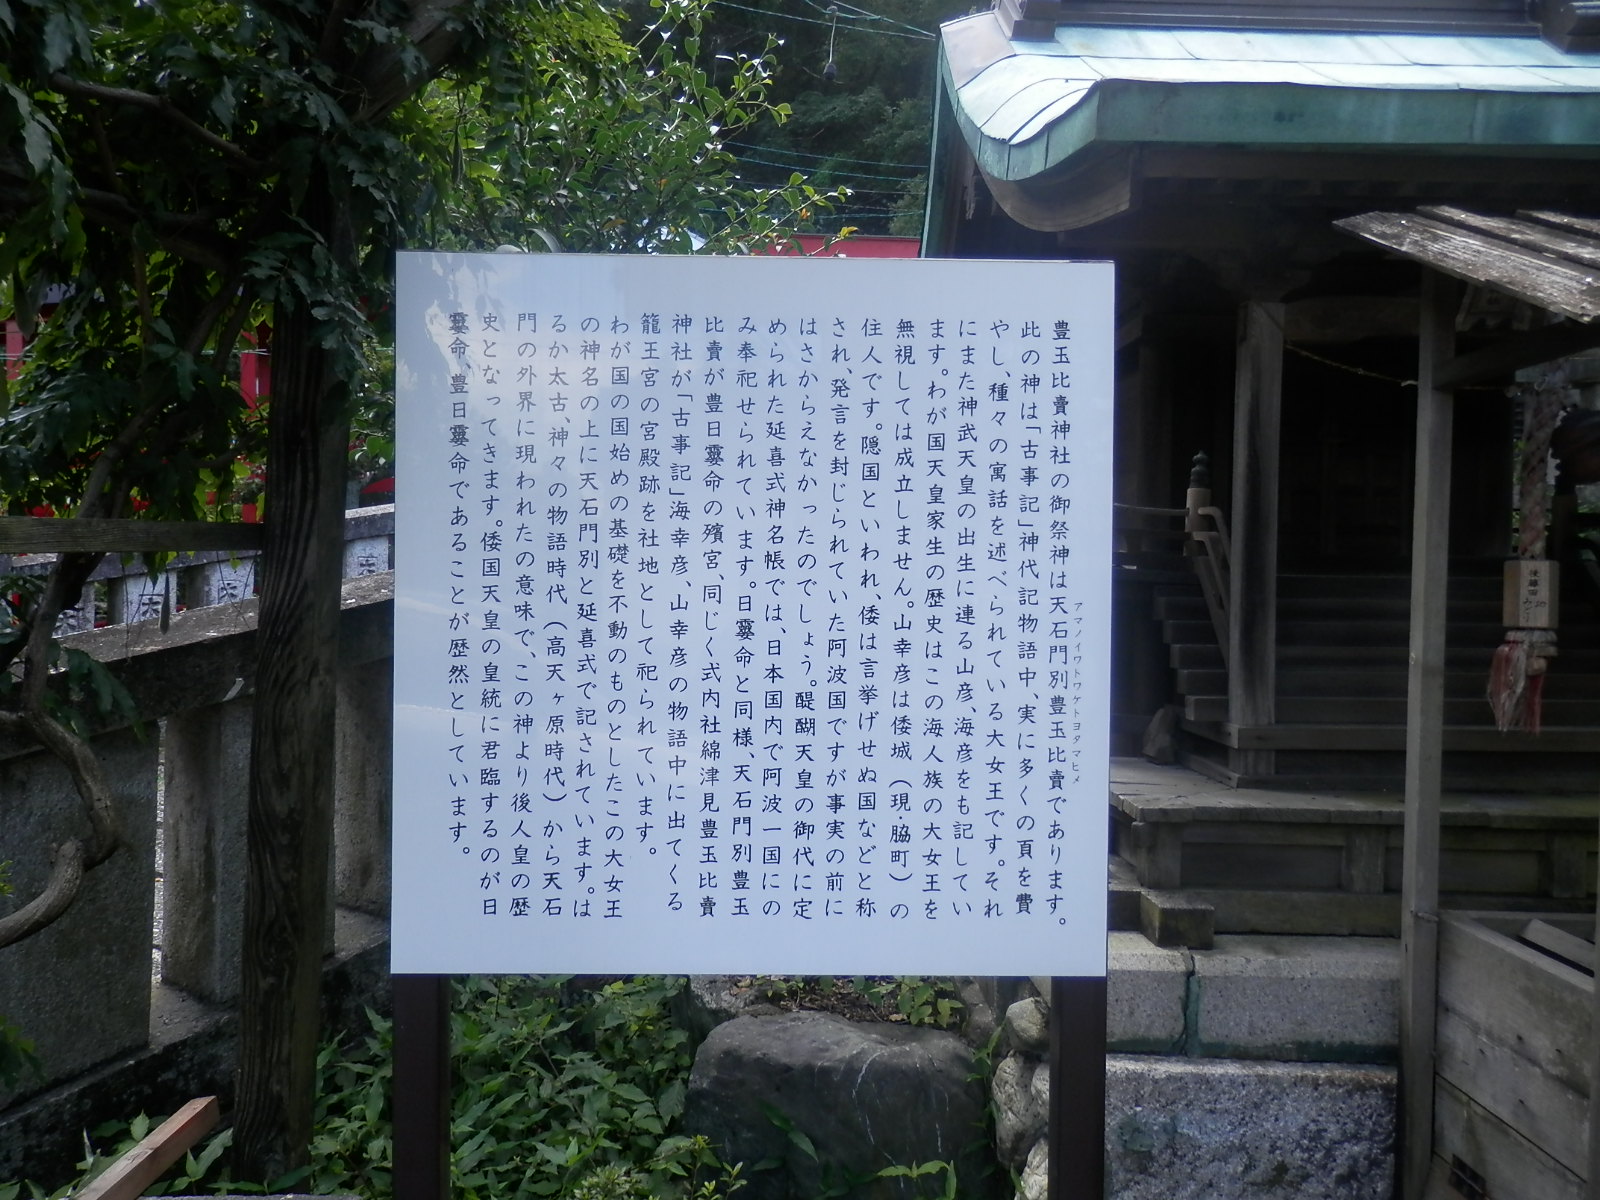 豊玉比賣神社の御祭神は天石門別豊玉比賣であります。
アマノイワトワケトヨタマヒメ
此の神は「古事記」神代記物語中、実に多くの頁を費
やし、種々の寓話を述べられている大女王です。それ
にまた神武天皇の出生に連る山彦、海彦をも記してい
ます。わが国天皇家生の歴史はこの海人族の大女王を
無視しては成立しません。山幸彦は倭城（現・脇町）の
住人です。隠国といわれ、倭は言挙げせぬ国などと称
され、発言を封じられていた阿波国ですが事実の前に
はさからえなかったのでしょう。醍醐天皇の御代に定
められた延喜式神名帳では、日本国内で阿波一国にの
み奉祀せられています。日靈命と同様、天石門別豊玉
比賣が豊日靈命の殯宮、同じく式内社綿津見豊玉比賣
神社が「古事記」海幸彦、山幸彦の物語中に出てくる
籠王宮の宮殿跡を社地として祀られています。
わが国の国始めの基礎を不動のものとしたこの大女王
の神名の上に天石門別と延喜式で記されています。は
るか太古、神々の物語時代（高天ヶ原時代）から天石
門の外界に現われたの意味で、この神より後人皇の歴
史となってきます。倭国天皇の皇統に君臨するのが日
靈命、豊日靈命であることが歴然としています。